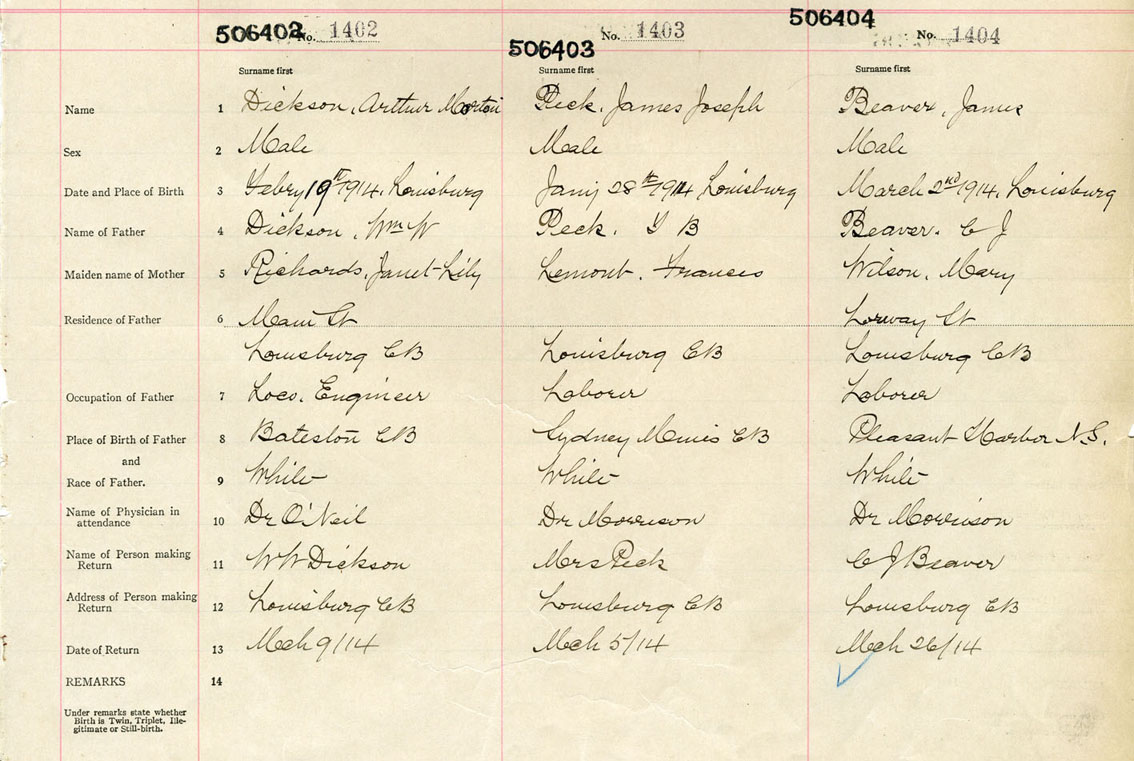 506402 No. 1402 506403 No. 1403 506404 No. 1404
Surname first Surname first Surname first
Name 1 Dickson, Arthur Morton Peck, James Joseph Beaver, James
Sex 2 Male Male Male
Date and Place of Birth 3 Febry 19th 1914, Louisburg Jany 28th 1914 Louisburg March 2nd 1914, Louisburg
Name of Father 4 Dickson, Wm W Peck, Y B Beaver, C J
Maiden name of Mother 5 Richards, Janet Lily Lemont, Frances Wilson, Mary
Residence of Father 6 Main St Lorway St
Louisburg CB Louisburg CB Louisburg CB
Occupation of Father 7 Loco. Engineer Laborer Laborer
Place of Birth of Father 8 Bateston CB Sydney Mines CB Pleasant Harbor N.S.
and
Race of Father. 9 White White White
Name of Physician in
attendance 10 Dr O'Neil Dr Morrison Dr Morrison
Name of Person making
Return 11 W W Dickson Mrs Peck C J Beaver
Address of Person making
Return 12 Louisburg CB Louisburg CB Louisburg CB
Date of Return 13 Mch 9/14 Mch 5/14 Mch 26/14
REMARKS 14
Under remarks state whether
Birth is Twin, Triplet, Ille-
gitimate or Still-birth.